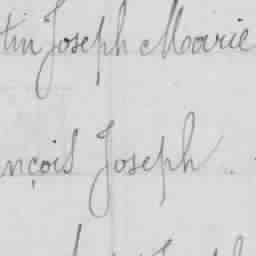 tin Joseph Marie
nçois Joseph